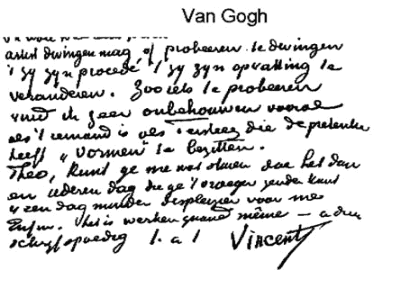 Van Gogh
artist dwingen mag, of probeeren te dwingen
't zy zyn procédé 't zy zyn opvatting te
veranderen. Zoo iets te probeeren
vind ik zeer onbehouwen vooral
als 't iemand is als die de pretentie
heeft „vormen" te bezitten.
Theo, kunt ge me wat sturen doe het dan
en iederen dag die ge 't vroeger zenden kunt
is een dag minder voor me
Enfin. Het is werken quand même — adieu
schryf spoedig t. à t. Vincent